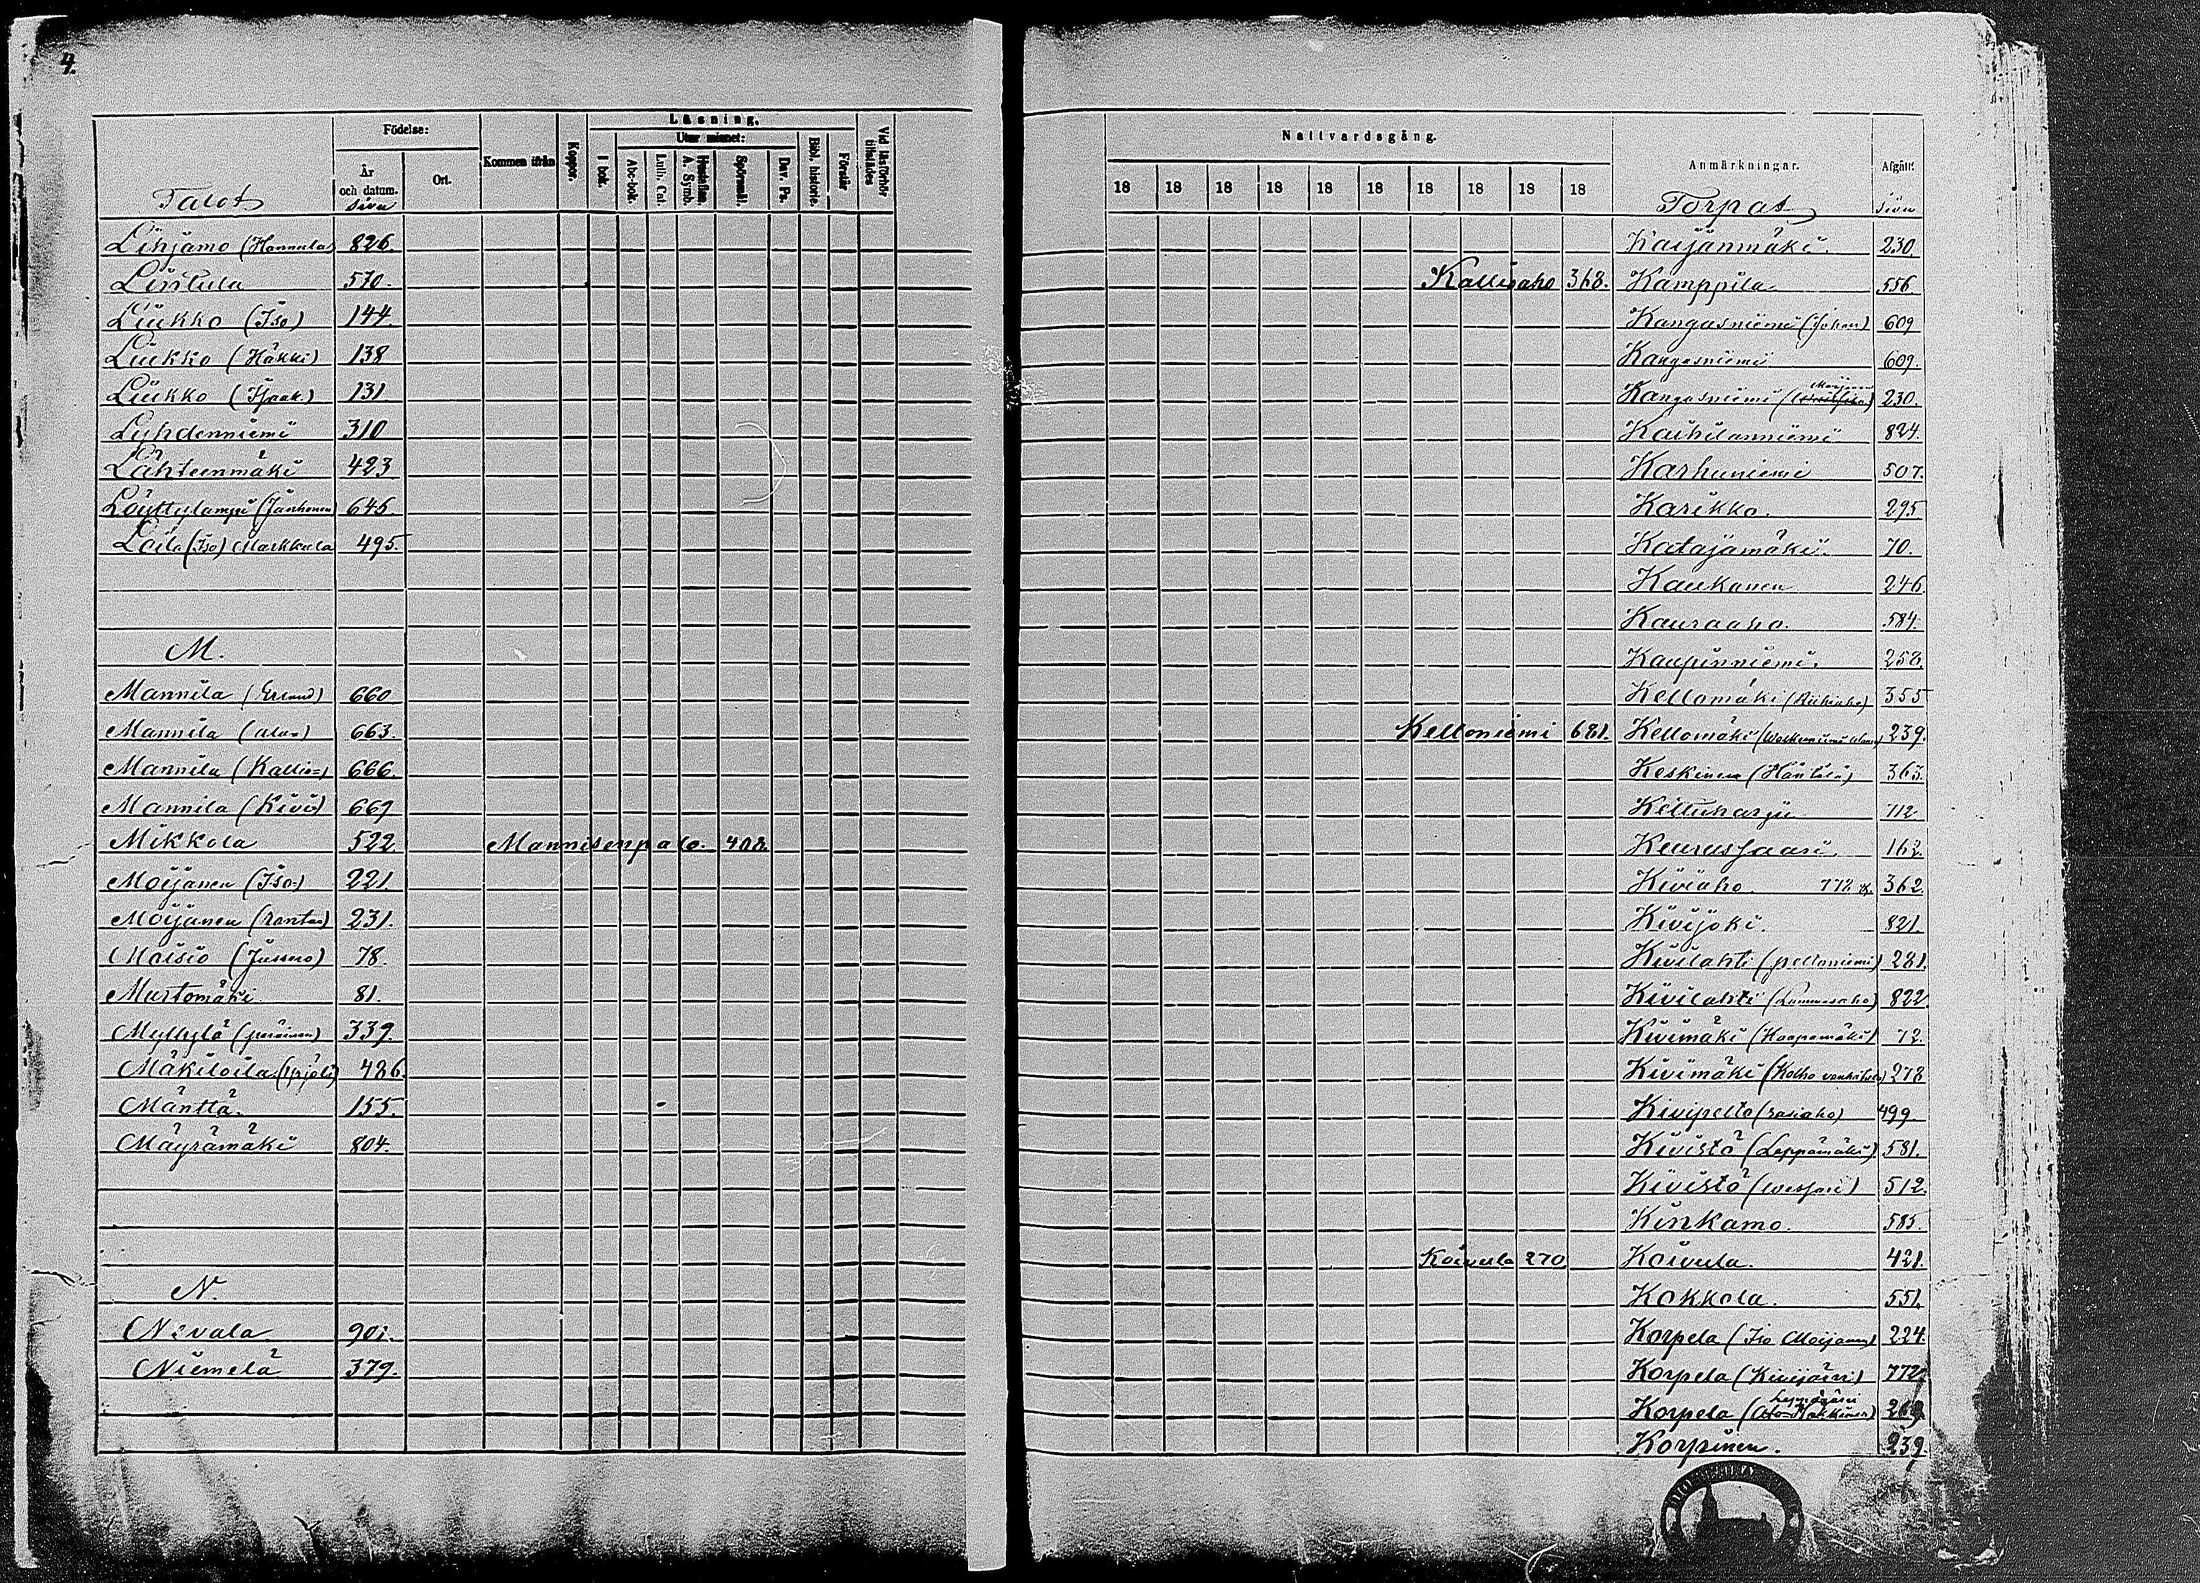 4.
Födelse:
Läsning.
Utur minnet:
År och datum.
Ort.
Kommen ifrån
Koppor.
I bok.
Abc-bok.
Luth. Cat.
Hustaflan. A. Symb.
Spörsmål.
Dav. Ps.
Bibl. historie.
Förstår
Vid läsförhör tillstädes
Talot
sivu
Lihjamo (Hannula) 826.
Lintula 570.
Liukko (Iso) 144.
Liukko (Häkki) 138
Liukko (Isaak.) 131
Lyhdenniemi 310
Lähteenmäki 423
Löyttylampi (Janhonen 645.
Loila (Iso) Markkula 495.
M.
Mannila (Erland) 660
Mannila (ala=) 663.
Mannila (Kallio=) 666.
Mannila (Kivi=) 669
Mikkola 522
Mannisenpalo. 408.
Moijanen (Iso=) 221
Moijanen (ranta=) 231.
Moisio (Jussero) 78.
Murtomäki 81.
Myllylä 339.
Mäkiloila (Yrjölä) 486.
Mänttä. 155.
Mäyrämäki 804.
N.
Nevala 901.
Niemelä 379.
Nattvardsgång.
18 18 18 18 18 18 18 18 18 18
Anmärkningar.
Afgått:
Torpat
sivu
Kaijänmäki. 230.
Kallioaho 368.
Kamppila 556.
Kangasniemi (Johan) 609
Kangasniemi 609.
Kangasniemi 230.
Kaihilanniemi 824.
Karhuniemi 507.
Karikko. 295
Katajamäki. 70.
Kaukanen 246.
Kauraaho. 584.
Kaupinniemi. 258.
Kellomäki (Riihiaho) 355
Kelloniemi 681.
Kellomäki 239.
Keskinen (Häntälä) 363.
Kettuharju 712
Keurussaari 162.
Kiviaho. 772. 362.
Kivijoki. 821.
Kivilahti (peltoniemi) 281.
Kivilahti (Lummasaho) 822
Kivimäki (Haapamäki) 72.
Kivimäki (Kolho vanhatalo) 278
Kivipelto (rasiaho) 499.
Kivistö (Leppämäki) 581.
Kivistö (wessari) 512.
Kinkamo. 585.
Koivula 270
Koivula. 421.
Kokkola. 551.
Korpela (Iso Moijanen) 224.
Korpela (Kivijärvi) 772.
Korpela
Korpinen. 239.